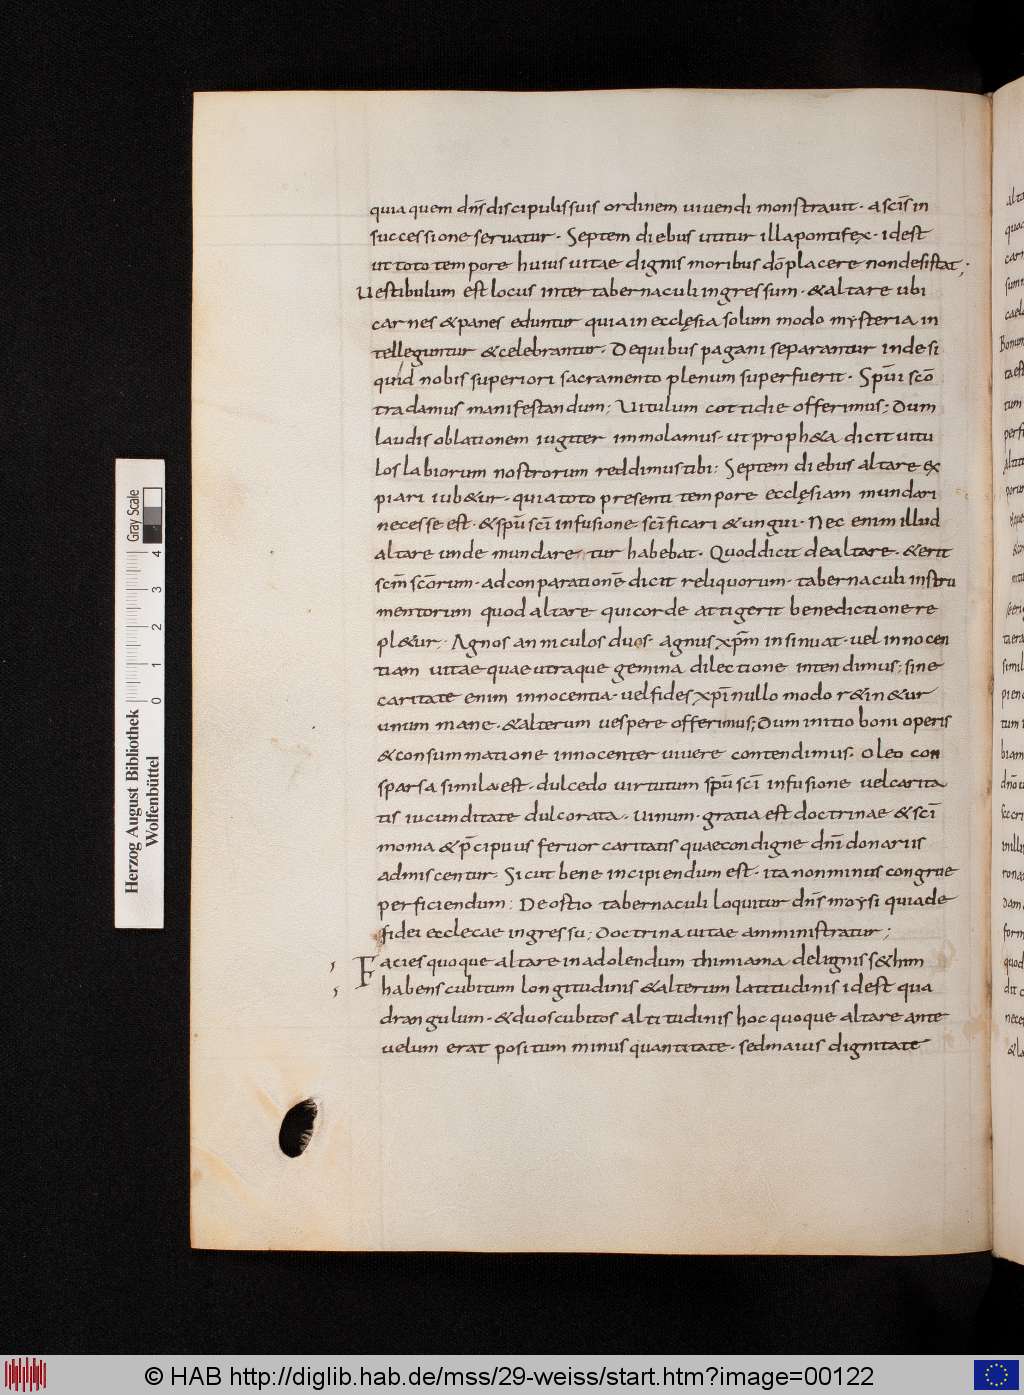 quia quem dn̄s discipulis suis ordinem uiuendi monstrauit · a sc̄is in
successione seruatur · Septem diebus utitur illa pontifex · idest
ut toto tempore huius uitae dignis moribus dō placere non desistat ;
Uestibulum est locus inter tabernaculi ingressum · & altare ubi
carnes & panes eduntur quia in ecclęsia solum modo mysteria in
telleguntur & celebrantur · De quibus pagani separantur inde si
quid nobis superiori sacramento plenum superfuerit · Sp̄ui sc̄o
tradamus manifestandum ; Uitulum cottidie offerimus ; Dum
laudis oblationem iugiter immolamus · ut proph&a dicit uitu
los labiorum nostrorum reddimus tibi : Septem diebus altare ex
piari iub&ur · quia toto presenti tempore ecclęsiam mundari
necesse est · & sp̄u sc̄i infusione sc̄ificari & ungui · Nec enim illud
altare unde mundare tur habebat · Quod dicit de altare · & erit
sc̄m sc̄orum · ad conparationē dicit reliquorum · tabernaculi instru
mentorum quod altare qui corde attigerit benedictione re
pl&ur · Agnos anniculos duos · agnus xp̄m insinuat · uel innocen
tiam uitae quae utraque gemina dilectione intendimus ; sine
caritate enim innocentia · uel fides xp̄i nullo modo r&in&ur
unum mane · & alterum uespere offerimus ; Dum initio boni operis
& consummatione innocenter uiuere contendimus · Oleo con
sparsa simila est · dulcedo uirtutum sp̄u sc̄i infusione uel carita
tis iucunditate dulcorata · Uinum · gratia est doctrinae & sc̄i
monia & p̄cipuus feruor caritatis quae condigne dn̄i donariis
admiscentur · Sicut bene incipiendum est · ita non minus congrue
perficiendum : De ostio tabernaculi loquitur dn̄s moysi quia de
fidei ecclecae ingressu ; Doctrina uitae amministratur ;
Facies quoque altare in adolendum thimiama de lignis s&him
habens cubitum longitudinis & alterum latitudinis idest qua
drangulum · & duos cubitos altitudinis hoc quoque altare ante
uelum erat positum minus quantitate · sed maius dignitate
Herzog August Bibliothek
Wolfenbüttel
0 1 2 3 4
Gray Scale
© HAB http://diglib.hab.de/mss/29-weiss/start.htm?image=00122